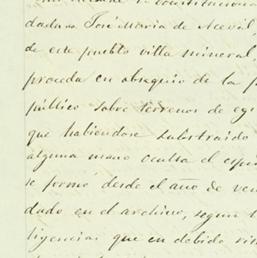 constitucional
dadano José María de Acevil,
de este pueblo villa mineral,
proceda en obsequio de la p
público sobre terrenos de eg
que habiendose substraido
alguna mano oculta el espe
se formó desde el año de vei
dado en el archivo, segun l
ligencias que en debida